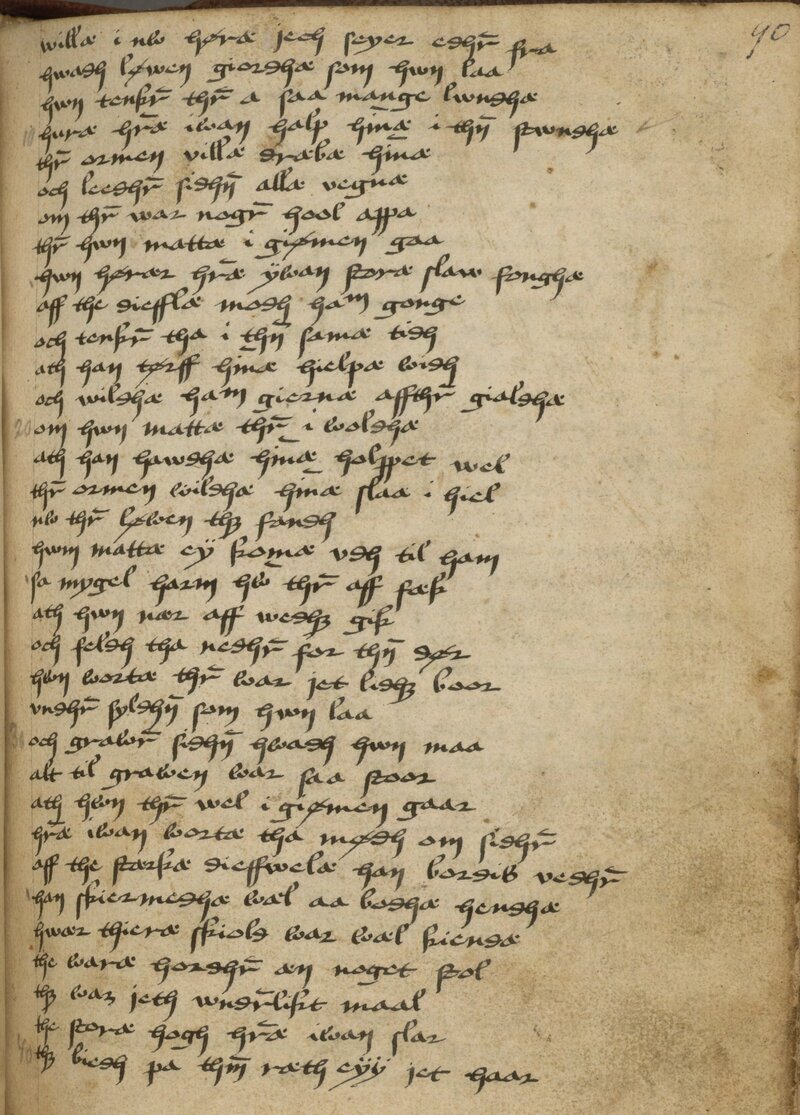 90
willæ i nw høræ jech seyer edhr̄ fra
hwadh løwen giordhæ som hwn laa
hwn tenkr̄ thr̄ a saa mange lwndhæ
huræ hr̄æ iwan halp hīnæ i thn̄ stwndhæ
thr̄ ormen villæ dræbæ hīnæ
och leedhr̄ sidhn̄ allæ vegnæ
om thr̄ war nogr̄ hool appa
thr̄ hwn mattæ i giømen gaa
hwn hørær hr̄æ ÿwan storæ slaw fonghæ
aff the diefflæ modh ham gonge
och tenkr̄ tha i thn̄ samæ tidh
ath han tørff hīnæ hielpæ widh
och wildhæ ham giernæ affthr̄ gialdhæ
om hwn mattæ thr̄ i woldhæ
ath han hawdhæ hīnæ holppet wel
thr̄ ormen wildhæ hīnæ slaa i hiel
nw thr̄ løwen thꝫ fandh
hwn mattæ eÿ komæ vdh til ham
sa mygel harm hw̄ thr̄ aff fæk
ath hwn nær aff wedhꝫ gik
och feldh tha nedhr̄ for thn̄ dør
hwn wortæ thr̄ war jet lidhꝫ boor
vndhr̄ syldhn̄ som hwn laa
och grawr̄ sidhn̄ hwadh hwn maa
alt til grawen war saa stoor
ath hwn thr̄ wel i giømen gaar
hr̄æ iwan wortæ tha mødh om sidhr̄
aff the stærkæ dieffwelæ han bordis vedhr̄
han skiermedhæ wæl aa bodhæ hendhæ
hwær thieræ skiold war wæl kiendæ
the waræ hordhr̄ æn noget stol
thꝫ war jeth wndr̄likt maal
the storæ hogh hr̄æ iwan slar
thꝫ biedh pa thm̄ ræth eÿÿ jet haar